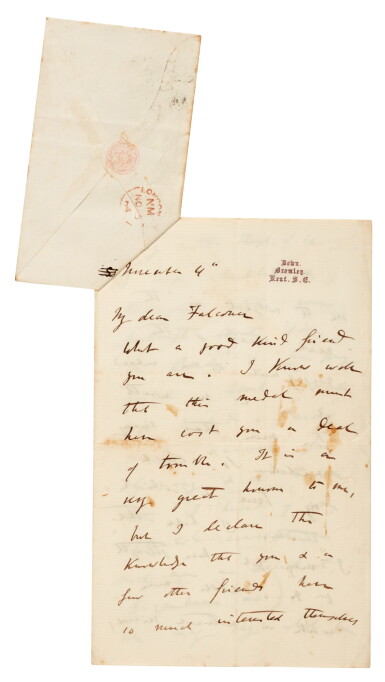 Down.
Bromley.
Kent. S. E.
November 4th
My dear Falconer
What a good kind friend
you are. I know well
that this medal must
have cost you a deal
of trouble. It is a
very great honour to me,
but I declare the
knowledge that you & a
few other friends have
so much interested themselves
LONDON
NO 5
64